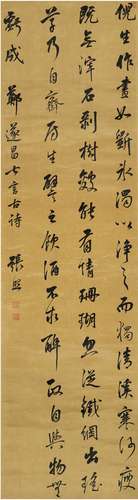 倪生作畫如斲冰濁以淨之而獨清溪寒沙瘦
既無滓石剝樹皴能有情珊瑚忽從鐵網出瑤
草乃自齋房生譬之飲酒不求醉政自與物無
虧成 鄭遂昌七言古詩 張照